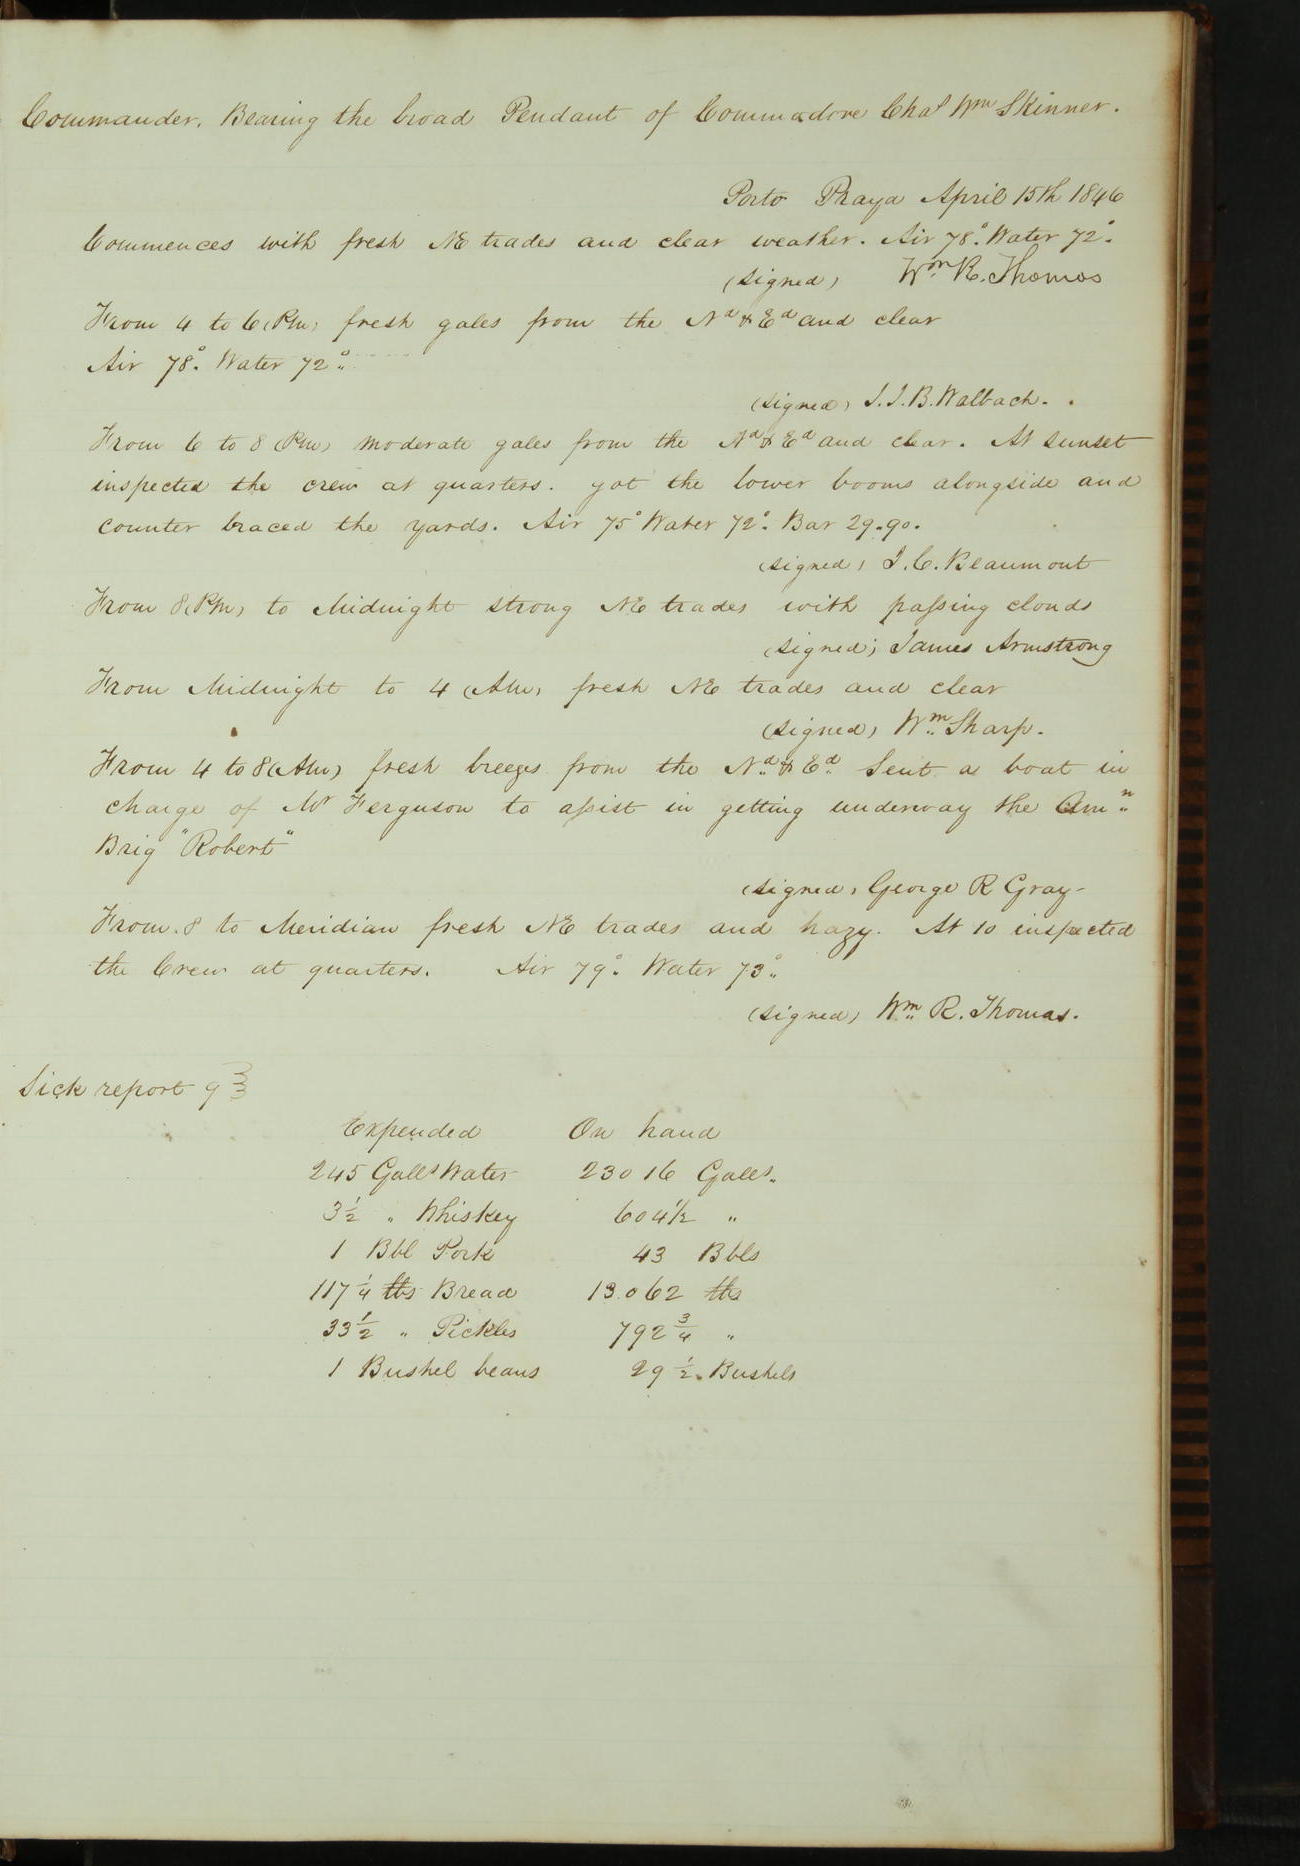 Commander. Bearing the broad Pendant of Commodore Chas Wm Skinner.
Porto Praya April 15th 1846
Commences with fresh NE trades and clear weather. Air 78°. Water 72°.
(signed) Wm R. Thomas
From 4 to 6 (PM) fresh gales from the Nd & Ed and clear
Air 78°. Water 72°.
(signed) J.J.B. Walbach.
From 6 to 8 (PM) moderate gales from the Nd & Ed and clear. At sunset
inspected the crew at quarters. got the lower booms alongside and
counter braced the yards. Air 75° Water 72°. Bar 29.90.
(signed) J.C. Beaumont
From 8 (PM) to Midnight strong NE trades with passing clouds
(signed) James Armstrong
From Midnight to 4 (AM) fresh NE trades and clear
(signed) Wm Sharp.
From 4 to 8 (AM) fresh breezes from the Nd & Ed. Sent a boat in
charge of Mr Ferguson to assist in getting underway the Amn
Brig "Robert"
(signed) George R Gray
From 8 to Meridian fresh NE trades and hazy. At 10 inspected
the Crew at quarters. Air 79°. Water 73°.
(signed) Wm R. Thomas.
Sick report 9
Expended On hand
245 Galls Water 23016 Galls.
3½ " Whiskey 604½ "
1 Bbl Pork 43 Bbls
117¼ lbs Bread 13.062 lbs
33½ " Pickles 792¾ "
1 Bushel beans 29½ Bushels